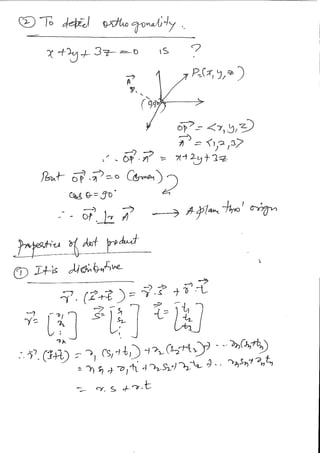 ② To detect orthogonality.
x + 2y + 3z = 0 is ?
P(x, y, z)
90°
OP = <x, y, z>
A = <1, 2, 3>
∴ OP . A = x + 2y + 3z
But OP . A = 0 (Given)
cos θ = 90°
∴ OP ⊥ A → A plane thro' origin
Properties of dot product
① It is distributive
r . (s + t) = r . s + r . t
r = [r1 r2 ⋮ rn] s = [s1 s2 ⋮] t = [t1 t2 ⋮ tn]
∴ r . (s + t) = r1 (s1 + t1) + r2 (s2 + t2) + ... rn (sn + tn)
= r1 s1 + r1 t1 + r2 s2 + r2 t2 + ... rn sn + rn tn
= r . s + r . t